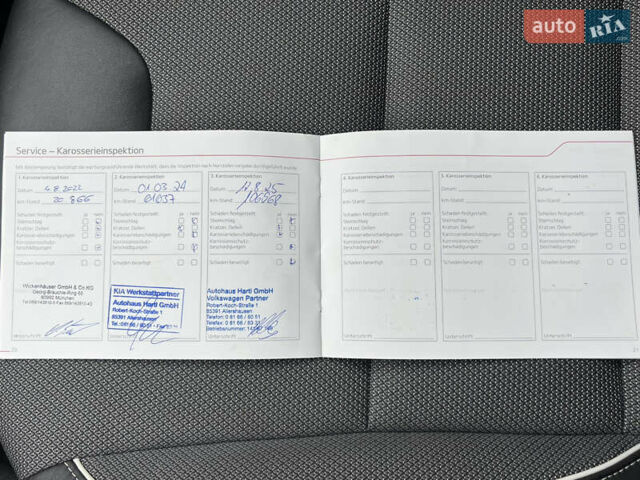 auto RIA .com
Service – Karosserieinspektion
1. Karosserieinspektion
Datum 4.8.2022
km-Stand 20.866
Schäden festgestellt: ja nein
Steinschlag
Kratzer, Dellen
Karosseriebeschädigungen
Korrosionsschutz-
beschädigungen
Schäden beseitigt
Wickenhäuser GmbH & Co KG
Georg-Brauchle-Ring
München
Unterschrift
2. Karosserieinspektion
Datum 01.03.24
km-Stand 61037
Schäden festgestellt: ja nein
Steinschlag
Kratzer, Dellen
Karosseriebeschädigungen
Korrosionsschutz-
beschädigungen
Schäden beseitigt
KIA Werkstattpartner
Autohaus Hartl GmbH
Robert-Koch-Straße 1
85391 Allershausen
Tel.: 0 81 66 / 60 51
Unterschrift
3. Karosserieinspektion
Datum
km-Stand 106268
Schäden festgestellt: ja nein
Steinschlag
Kratzer, Dellen
Karosseriebeschädigungen
Korrosionsschutz-
beschädigungen
Schäden beseitigt
Autohaus Hartl GmbH
Volkswagen Partner
Robert-Koch-Straße 1
85391 Allershausen
Telefon: 0 81 66 / 60 51
Telefax: 0 81 66 /
Betriebsnummer:
Unterschrift
4. Karosserieinspektion
Datum
km-Stand
Schäden festgestellt: ja nein
Steinschlag
Kratzer, Dellen
Karosseriebeschädigungen
Korrosionsschutz-
beschädigungen
Schäden beseitigt
Unterschrift
5. Karosserieinspektion
Datum
km-Stand
Schäden festgestellt: ja nein
Steinschlag
Kratzer, Dellen
Karosseriebeschädigungen
Korrosionsschutz-
beschädigungen
Schäden beseitigt
Unterschrift
6. Karosserieinspektion
Datum
km-Stand
Schäden festgestellt: ja nein
Steinschlag
Kratzer, Dellen
Karosseriebeschädigungen
Korrosionsschutz-
beschädigungen
Schäden beseitigt
Unterschrift